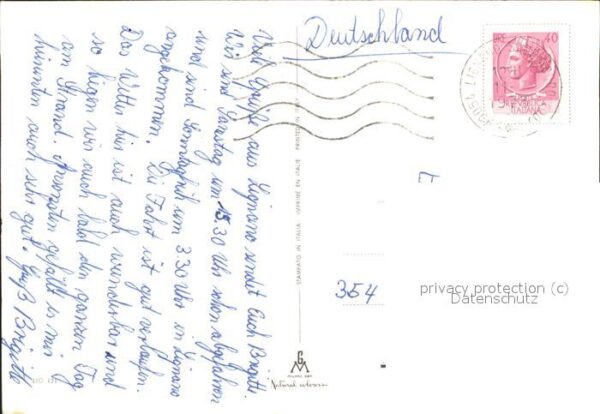 Deutschland
LIRE 40
REPUBBLICA
ITALIANA
Viele Grüße aus Lignano sendet Euch Brigitte.
Wir sind Samstag um 15.30 Uhr schon abgefahren
und sind Sonntagfrüh um 3.30 Uhr in Lignano
angekommen. Die Fahrt ist gut verlaufen.
Das Wetter hier ist auch wunderbar und
so liegen wir auch bald den ganzen Tag
am Strand. Ansonsten gefällt es mir
hier unten auch sehr gut. Gruß Brigitte
STAMPATO IN ITALIA IMPRIMÉ EN ITALIE PRINTED IN ITALY
354
privacy protection (c)
Datenschutz
GM
Natural colours